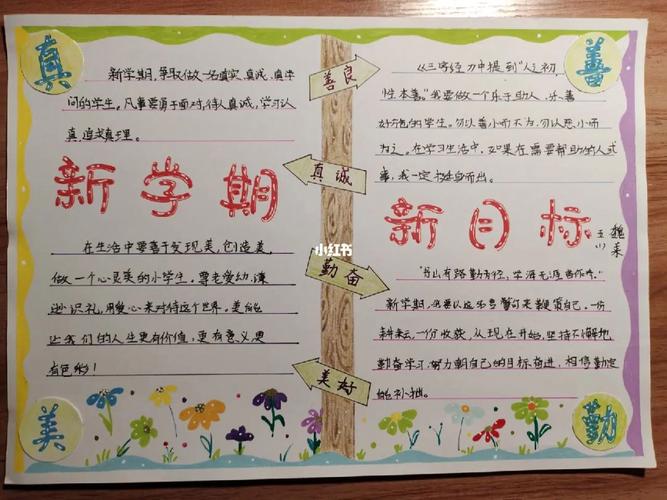 真
新学期,争取做一名真实、真诚、真学
问的学生。凡事要勇于面对,待人真诚,学习认
真,追求真理。
善良
真诚
勤奋
美好
善
从三字经力中提到"人之初,
性本善。"我要做一个乐于助人,乐善
好施的学生。勿以善小而不为,勿以恶小而
为之。在学习生活中,如果在需要帮助的人或
事,我一定挺身而出。
新学期
新目标
小红书
在生活中要善于发现美,创造美,
做一个心灵美的小学生。尊老爱幼,谦
逊识礼,用爱心来对待这个世界。美能
让我们的人生更有价值,更有意义,更
有色彩!
"书山有路勤为径,学海无涯苦作舟。"
新学期,我要以这句名言来鞭策自己。一份
耕耘,一份收获,从现在开始,坚持不懈地
勤奋学习,努力朝自己的目标奋进,相信勤定
能补拙。
美
勤